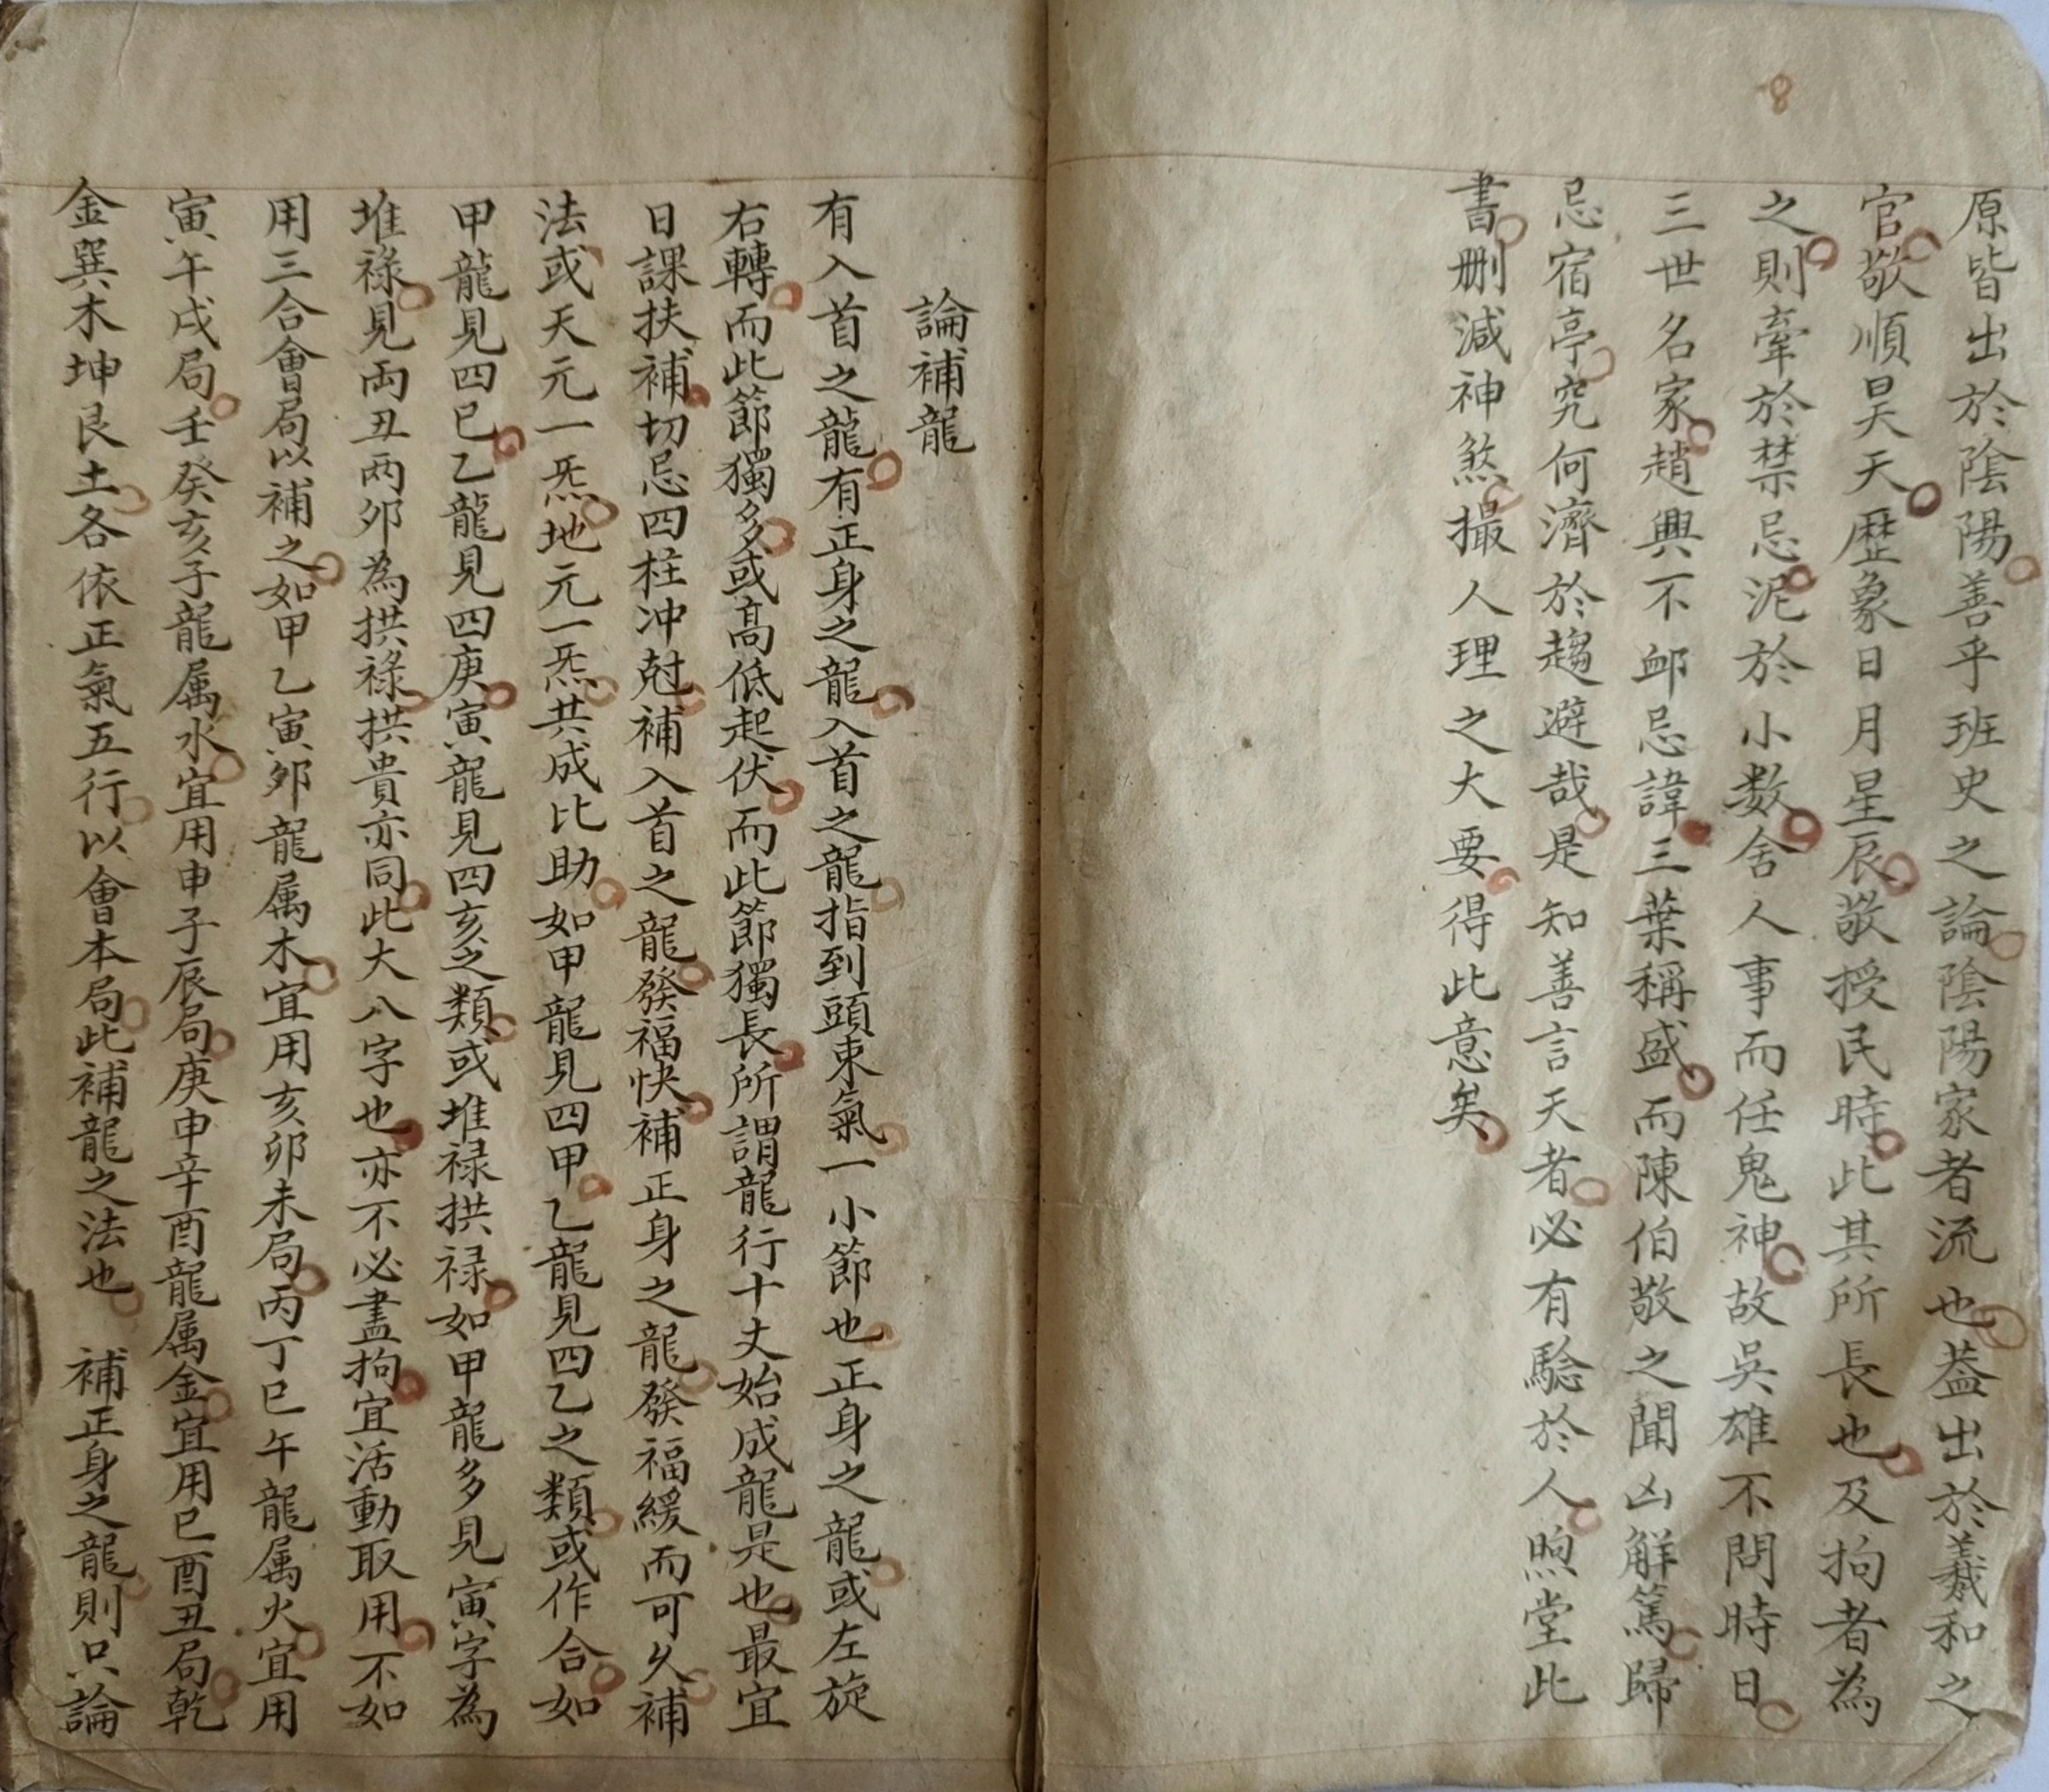 8
原皆出於陰陽善乎班史之論陰陽家者流也葢出於羲和之
官敬順昊天歷象日月星辰敬授民時此其所長也及拘者為
之則牽於禁忌泥於小数舍人事而任鬼神故吳雄不問時日
三世名家趙興不卹忌諱三葉稱盛而陳伯敬之聞凶觧篤歸
忌宿亭究何濟於趨避哉是知善言天者必有騐於人煦堂此
書删減神煞撮人理之大要得此意矣
論補龍
有入首之龍有正身之龍入首之龍指到頭束氣一小節也正身之龍或左旋
右轉而此節獨多或高低起伏而此節獨長所謂龍行十丈始成龍是也最宜
日課扶補切忌四柱冲尅補入首之龍發福快補正身之龍發福緩而可久補
法或天元一炁地元一炁共成比助如甲龍見四甲乙龍見四乙之類或作合如
甲龍見四巳乙龍見四庚寅龍見四亥之類或堆禄拱禄如甲龍多見寅字為
堆祿見両丑両卯為拱祿拱貴亦同此大八字也亦不必盡拘宜活動取用不如
用三合會局以補之如甲乙寅卯龍属木宜用亥卯未局丙丁巳午龍属火宜用
寅午戌局壬癸亥子龍属水宜用申子辰局庚申辛酉龍属金宜用巳酉丑局乾
金巽木坤艮土各依正氣五行以會本局此補龍之法也　補正身之龍則只論